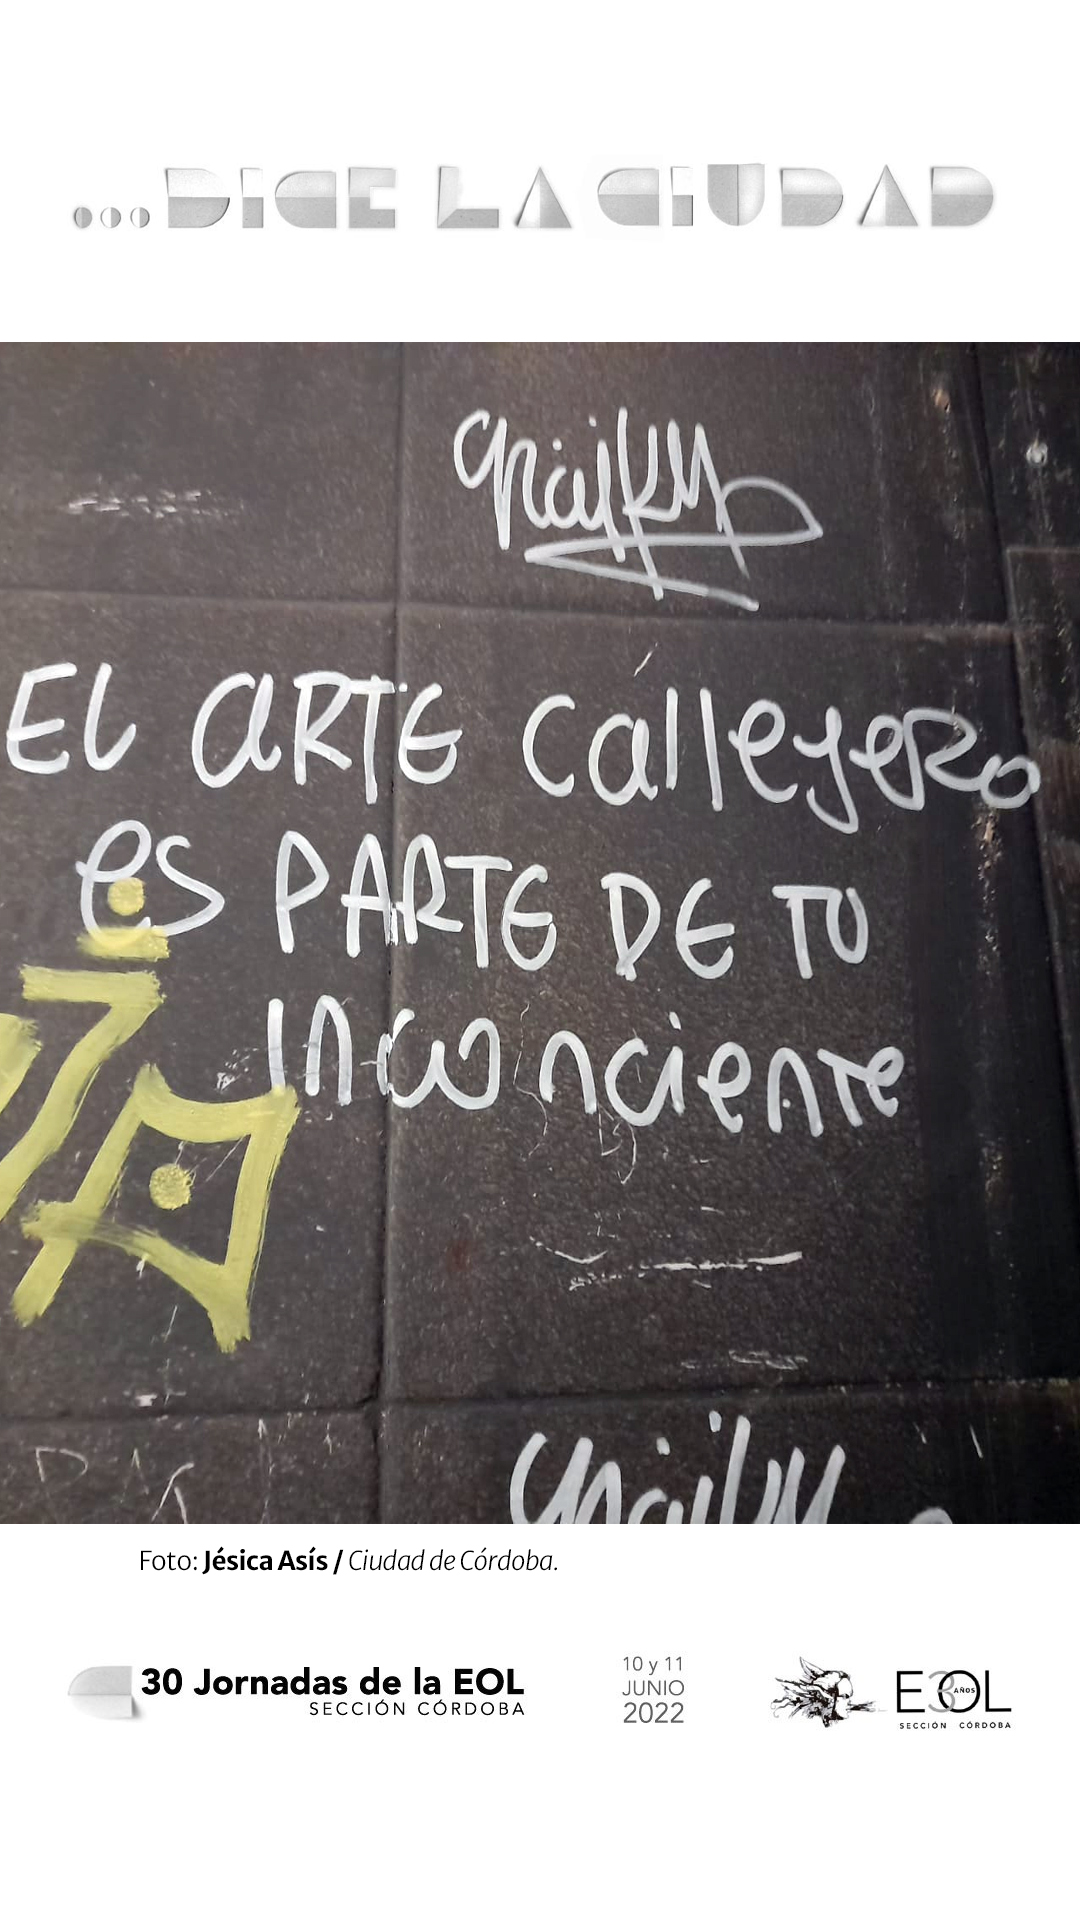 ...DICE LA CIUDAD
EL ARTE callejero
es PARTE DE TU
INconciente
Foto: Jésica Asís / Ciudad de Córdoba.
30 Jornadas de la EOL
SECCIÓN CÓRDOBA
10 y 11
JUNIO
2022
EOL
30 AÑOS
SECCIÓN CÓRDOBA